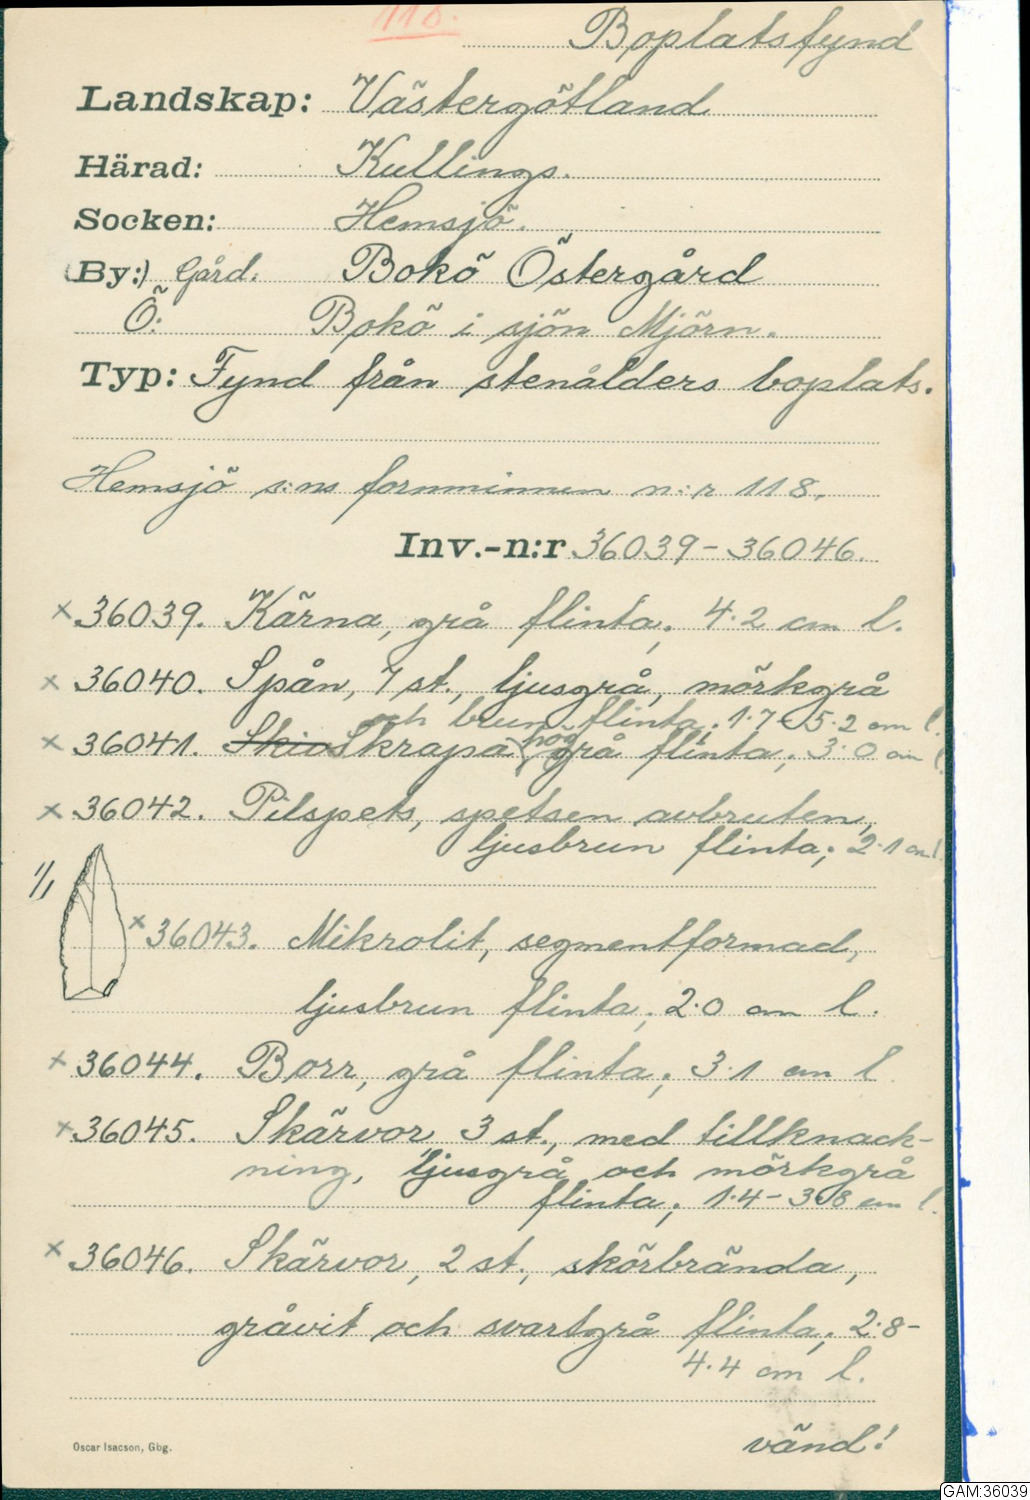 118.
Boplatsfynd
Landskap: Västergötland
Härad: Kullings.
Socken: Hemsjö.
(By:) Gård. Bokö Östergård
Ö: Bokö i sjön Mjörn.
Typ: Fynd från stenålders boplats.
Hemsjö s:ns fornminnen n:r 118.
Inv.-n:r 36039-36046.
× 36039. Kärna, grå flinta; 4.2 cm l.
× 36040. Spån, 7 st., ljusgrå, mörkgrå
och brun flinta; 1.7-5.2 cm l.
× 36041. Skiv Skrapa (hög) grå flinta; 3.0 cm l.
× 36042. Pilspets, spetsen avbruten,
ljusbrun flinta; 2.1 cm l.
1/1
× 36043. Mikrolit, segmentformad,
ljusbrun flinta; 2.0 cm l.
× 36044. Borr, grå flinta; 3.1 cm l
× 36045. Skärvor, 3 st., med tillknack-
ning, ljusgrå och mörkgrå
flinta; 1.4-3.8 cm l.
× 36046. Skärvor, 2 st., skörbrända,
gråvit och svartgrå flinta; 2.8-
4.4 cm l.
Oscar Isacson, Gbg.
vänd!
GAM:36039